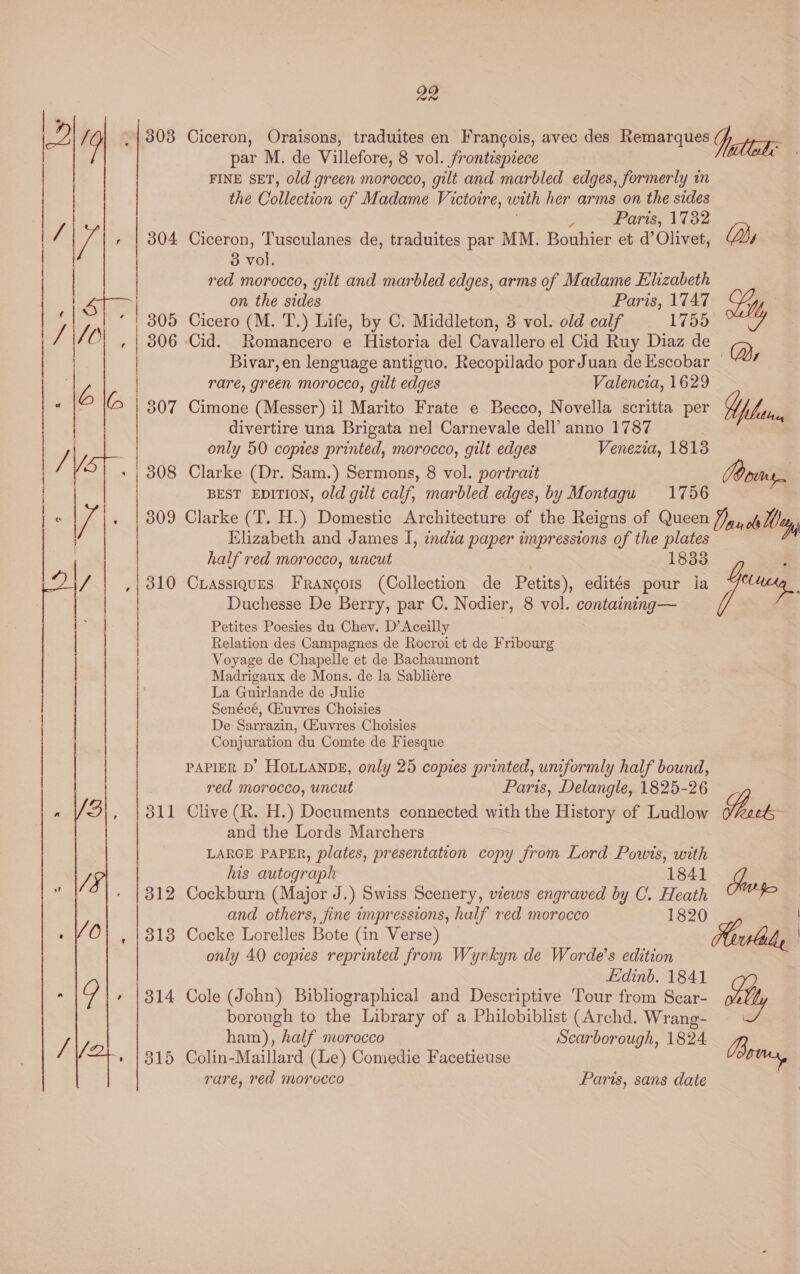 22
2 19 303 Ciceron, Oraisons, traduites en François, avec des Remarques
par M. de Villefore, 8 vol. frontispiece
FINE SET, old green morocco, gilt and marbled edges, formerly in
the Collection of Madame Victoire, with her arms on the sides
Paris, 1732
1 7 304 Ciceron, Tusculanes de, traduites par MM. Bouhier et d'Olivet,
3 vol.
red morocco, gilt and marbled edges, arms of Madame Elizabeth
on the sides Paris, 1747
5 305 Cicero (M. T.) Life, by C. Middleton, 3 vol. old calf 1755 Lilly
1 10 306 Cid. Romancero e Historia del Cavallero el Cid Ruy Diaz de
Bivar, en lenguage antiguo. Recopilado por Juan de Escobar
rare, green morocco, gilt edges Valencia, 1629
6 6 307 Cimone (Messer) il Marito Frate e Becco, Novella scritta per
divertire una Brigata nel Carnevale dell' anno 1787
only 50 copies printed, morocco, gilt edges Venezia, 1813
1 15 308 Clarke (Dr. Sam.) Sermons, 8 vol. portrait
BEST EDITION, old gilt calf, marbled edges, by Montagu 1756
7 309 Clarke (T. H.) Domestic Architecture of the Reigns of Queen
Elizabeth and James I, india paper impressions of the plates
half red morocco, uncut 1833
2 1 310 CLASSIQUES FRANÇOIS (Collection de Petits), edités pour la
Duchesse De Berry, par C. Nodier, 8 vol. containing—
Petites Poesies du Chev. D'Aceilly
Relation des Campagnes de Rocroi et de Fribourg
Voyage de Chapelle et de Bachaumont
Madrigaux de Mons. de la Sabliére
La Guirlande de Julie
Senécé, Œuvres Choisies
De Sarrazin, Œuvres Choisies
Conjuration du Comte de Fiesque
PAPIER D' HOLLANDE, only 25 copies printed, uniformly half bound,
red morocco, uncut Paris, Delangle, 1825-26
13 311 Clive (R. H.) Documents connected with the History of Ludlow
and the Lords Marchers
LARGE PAPER, plates, presentation copy from Lord Powis, with
his autograph 1841
18 312 Cockburn (Major J.) Swiss Scenery, views engraved by C. Heath
and others, fine impressions, half red morocco 1820
10 313 Cocke Lorelles Bote (in Verse)
only 40 copies reprinted from Wynkyn de Worde's edition
Edinb. 1841
9 314 Cole (John) Bibliographical and Descriptive Tour from Scar- Lilly
borough to the Library of a Philobiblist (Archd. Wrang-
ham), half morocco Scarborough, 1824
1 12 315 Colin-Maillard (Le) Comedie Facetieuse
rare, red morocco Paris, sans date